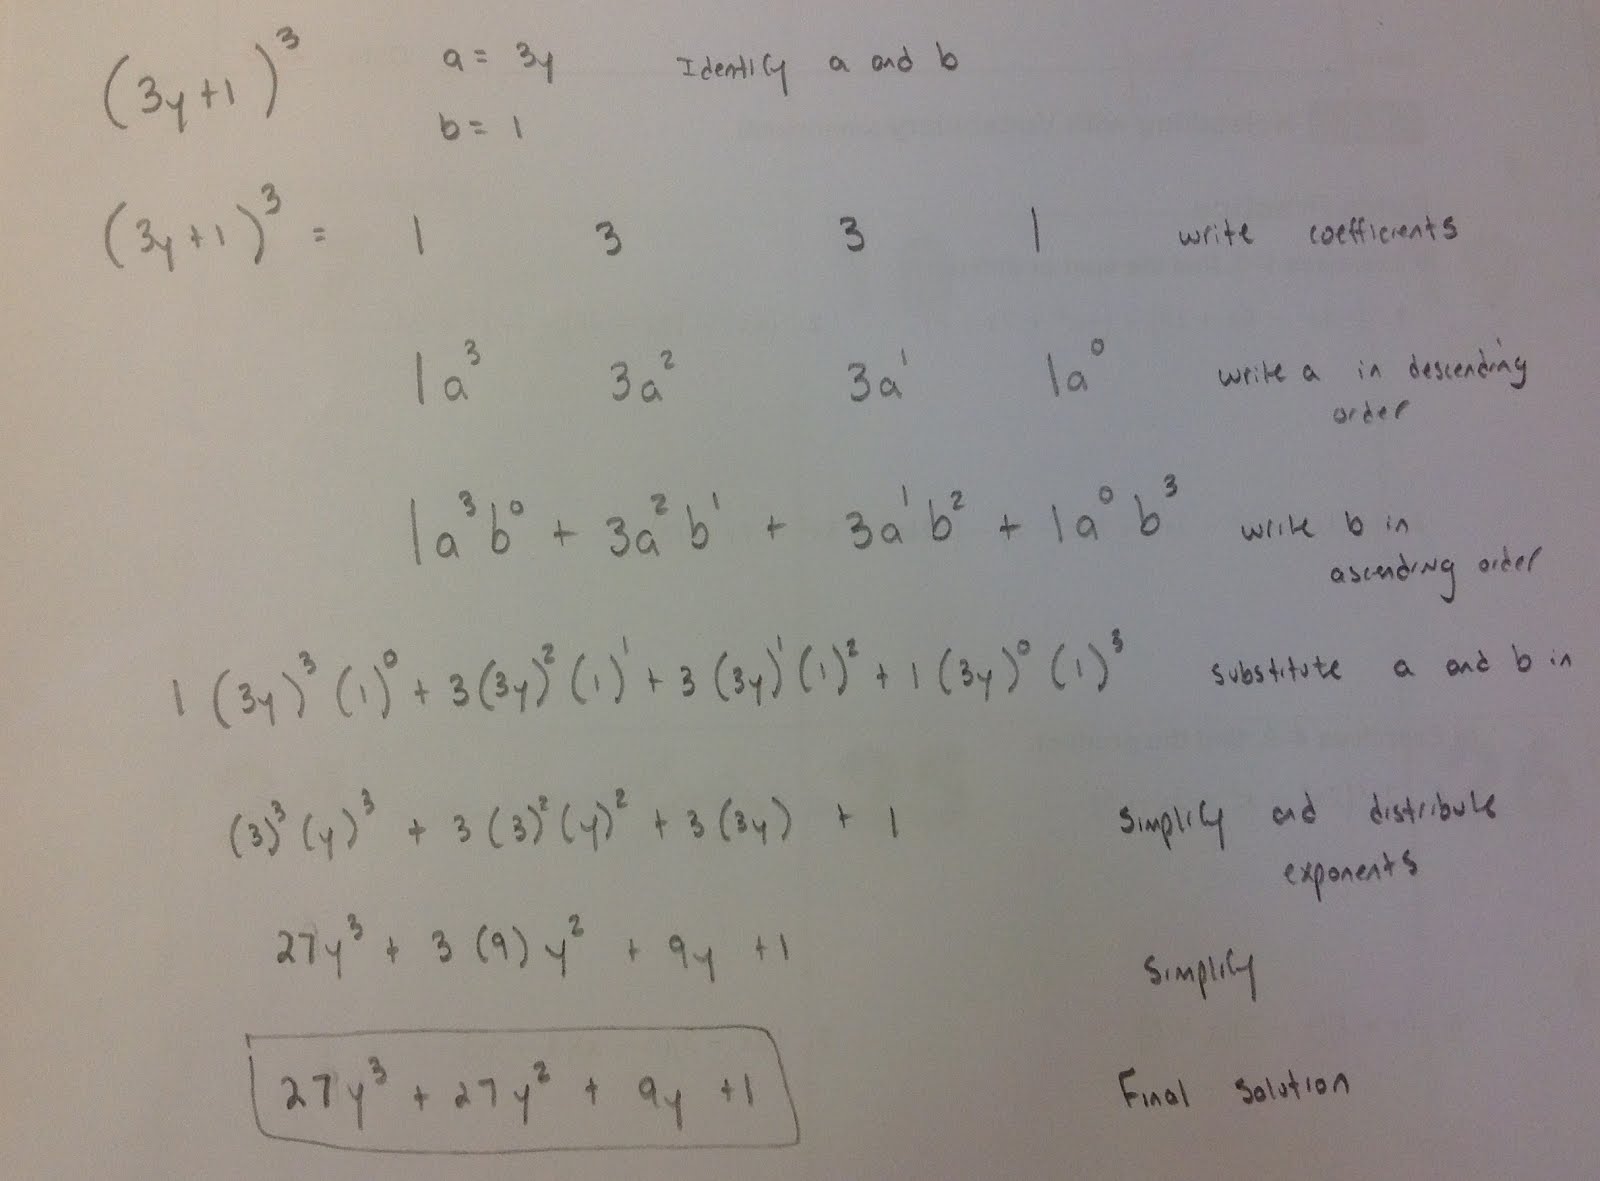 (3y+1)³ a = 3y Identify a and b
b = 1
(3y+1)³ = 1 3 3 1 write coefficients
1a³ 3a² 3a¹ 1a⁰ write a in descending
order
1a³b⁰ + 3a²b¹ + 3a¹b² + 1a⁰b³ write b in
ascending order
1(3y)³(1)⁰ + 3(3y)²(1)¹ + 3(3y)¹(1)² + 1(3y)⁰(1)³ substitute a and b in
(3)³(y)³ + 3(3)²(y)² + 3(3y) + 1 Simplify and distribute
exponents
27y³ + 3(9)y² + 9y + 1 Simplify
27y³ + 27y² + 9y + 1 Final Solution